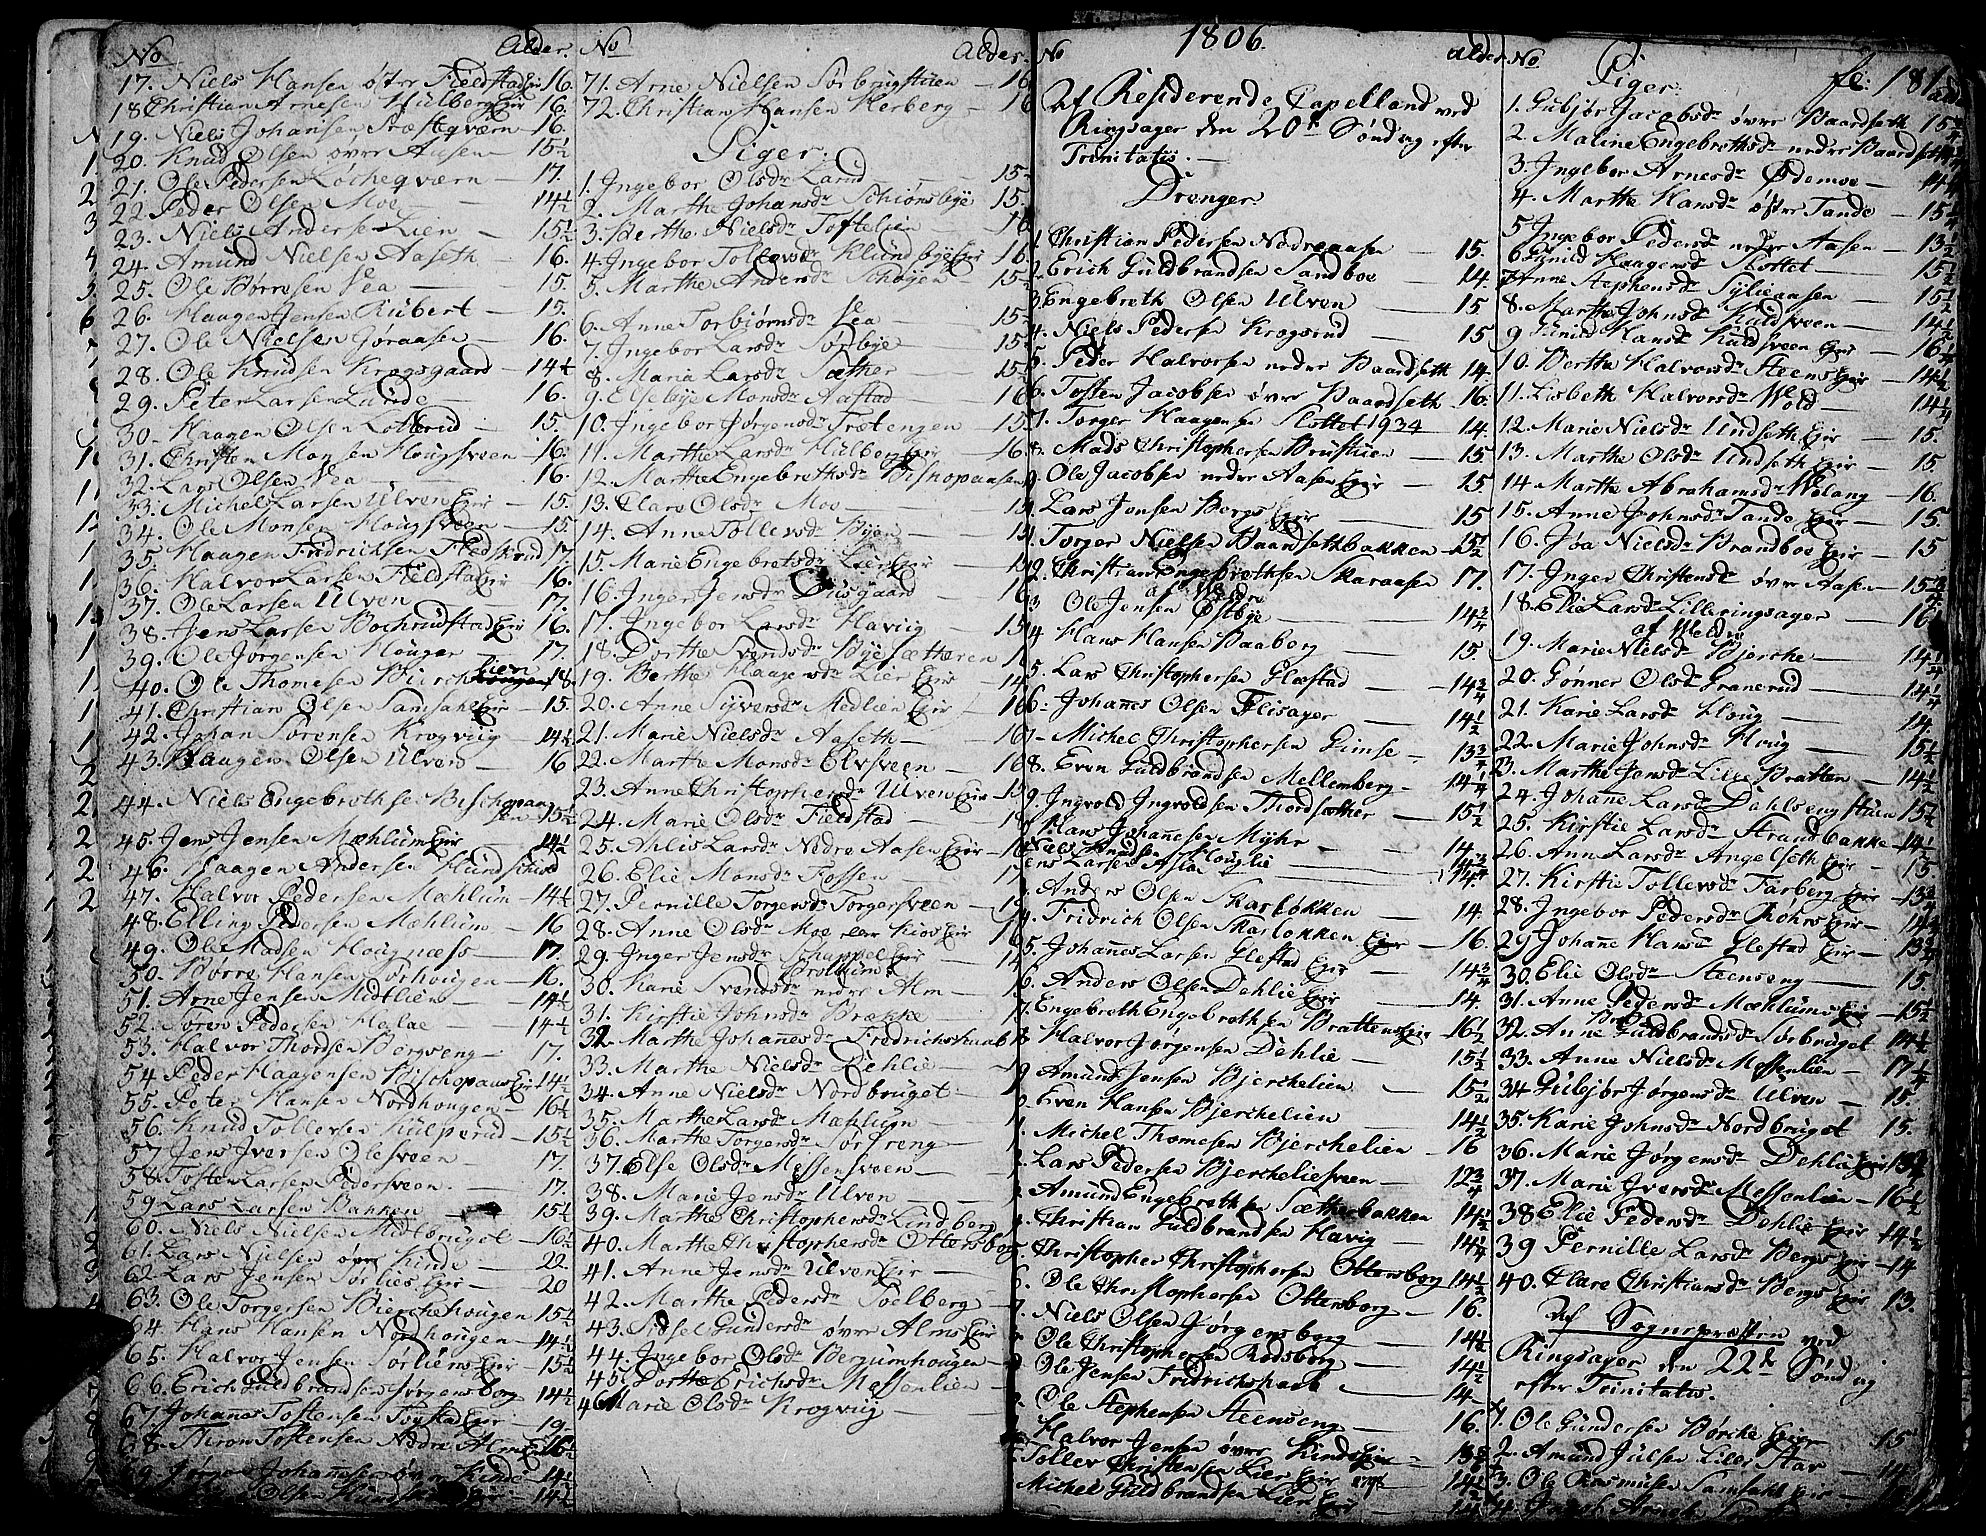 No Alder.
17. Niels Hansen østre Fieldstad Eir 16.
18 Christian Arnesen Hulberg Eir 16.
19. Niels Johansen Præsteqværn 16.
20. Knud Olsen øvre Aasen 15½
21. Ole Pedersen Locheqværn 17.
22 Peder Olsen Moe 14½
23. Niels Anderse Lien 15½
24. Amund Nielsen Aaseth 16.
25. Ole Børresen Vea 15.
26. Haagen Jensen Rubert 15.
27. Ole Nielsen Gøraasen 16.
28. Ole Knudsen Krogsgaard 14½
29. Peter Larsen Lunde 16.
30. Haagen Olsen Lotterud 15.
31. Christen Monsen Hougsveen 16.
32. Lars Olsen Vea 16.
33. Michel Larsen Ulven Eir 15.
34. Ole Monsen Hougsveen 15.
35. Haagen Fridrichsen 17
36. Halvor Larsen Fieldstad Eir 16.
37. Ole Larsen Ulven 17.
38. Jens Larsen Eir 16.
39. Ole Jørgensen Houger 17.
40. Ole Thomesen Bierchlien 18
41. Christian Olsen Samsahl Eir 15.
42. Johan Sørensen Krogviig 14½
43. Haagen Olsen Ulven 16
44. Niels Engebrethsen Bischopaasen 15½
45. Jens Jensen Mæhlum Eir 14½
46. Haagen Andersen
47. Halvor Pedersen Mæhlum 14½
48. Elling Pedersen Mæhlum 16
49. Ole Madsen Hougnæss 17.
50. Børre Hansen Sørhougen 16.
51. Arne Jensen Midtlien 14½
52. Søren Pedersen 14½
53. Halvor Thordsen Bergseng 17.
54. Peder Haagensen Bischopaas Eir 14½
55. Peter Hansen Nordhougen 16½
56. Knud Tollefsen Kulperud 15½
57 Jens Iversen Olesveen 17.
58. Tosten Larsen Pedersveen. 17.
59 Lars Larsen Bakken 15½
60. Niels Nielsen Midtbruget 16½
61. Lars Nielsen øvre Kinde 22.
62. Lars Jensen Sørlies Eir 20
63. Ole Torgersen Bierchehougen 15½
64. Hans Hansen Nordhougen 14½
65. Halvor Jensen Sørliens Eir 15½
66. Erich Guldbrandsen Jørgensborg 14½
67. Johanes Tostensen Eir 19.
68. Thron Tostensen Nedre Alms Eir 16½
69. Johanesen øvre Kinde 14½
Olsen 14½
No Alder.
71. Arne Nielsen Sørbrugstuen 16
72. Christian Hansen Herberg 16
Piger.
1. Ingebor Olsdr. Land 15
2. Marthe Johansdr Schiønsbye 15.
3. Berthe Nielsdr Toftelien 16
4. Ingebor Tollevsdr Klundbye Eir 16
5. Marthe Andersdr Schøyen 15
6. Anne Torbjørnsdr Vea 15
7. Ingebor Larsdr Sørbye 15
8. Maria Larsdr Sæther 15
9. Elsebye Monsdr Aastad 16
10. Ingebor Jørgensdr Trætengen 15
11. Marthe Larsdr Hulberg Eir 16
12. Marthe Engebrethsdr Bishopaasen
13. Clare Olsdr Moe
14. Anne Tollevsdr Byen
15. Marie Engebretsdr Lier Eir
16. Inger Jensdr Duesgaard
17. Ingebor Larsdr Haviig 15
18. Dorthe Svendsdr Byesætheren
19. Berthe Haagensdr Lier Eir
20. Anne Syversdr Medlien Eir
21. Marie Nielsdr Aaseth
22. Marthe Monsdr Elvsveen
23. Anne Christophersdr Ulven Eir
24. Marie Olsdr Fieldstad
25. Ahlis Larsdr Nedre Aasen Eir
26. Elie Monsdr Fossen
27. Pernille Torgersdr Torgersveen
28. Anne Olsdr Moe Eir
29. Inger Jensdr Schappel Eir
30. Karie Svendsdr nedre Alm
31. Kirstie Johnsdr Brække
32. Marthe Johanesdr Fredrichshaab
33. Marthe Nielsdr Dehlie
34. Anne Nielsdr Nordbruget
35. Marthe Larsdr Mæhlum
36. Marthe Torgersdr Sørstreng
37. Else Olsdr Messensveen
38. Marie Jensdr Ulven
39. Marthe Christophersdr Lindberg
40. Marthe Christophersdr Ottersborg
41. Anne Jensdr Ulven Eir
42. Marthe Pedersdr Soelberg
43. Sidsel Gundersdr øvre Alms Eir
44. Ingebor Olsdr Bergumhougen
45. Dorthe Erichsdr Messenlien
46 Marie Olsdr Krogviig
1806.
No Alder
Af Residerende Capelland ved
Ringsager den 20de Søndag efter
Trinitatis.
Drenger.
1. Christian Pedersen Nedreaasen 15.
2. Erich Guldbrandsen Sandboe 14.
3. Engebreth Olsen Ulven 15
4. Niels Pedersen Krogsrud 15
5. Peder Halvorsen nedre Baardseth 14.
6. Tosten Jacobsen øvre Baardseth 16.
7. Torger Haagensen Slottet 1934 14.
8. Mads Christophersen Brustuen 15
9. Ole Jacobsen nedre Aasen Eir 15
Lars Jensen Bergs Eir 15
Torger Nielsen Baardsethbakken 15½
2. Christian Engebrethsen Skaraasen 17.
3 Ole Jensen Østbye af Veldre 14¾
4 Hans Hansen Baaberg 15.
5. Lars Christophersen Glæstad 14¾
6. Johanes Olsen Flisager 14½
7. Michel Christophersen Gimse 13¾
8. Even Guldbrandsen Mellemberg 14¼
9. Ingvold Ingvoldsen Thordsæther 15½
Hans Johanesen Myhr 14.
Niels Knudsen Houglie 14¾
Jens Larsen 14
Anders Olsen Skarløkken 14.
4. Fridrich Olsen Skarløkken Eir 16.
5. Johannes Larsen Glestad Eir 14¾
6. Anders Olsen Dehlie Eir 14
7. Engebreth Engebrethsen Brattens Eir 16½
8. Halvor Jørgensen Dehlie 15½
9. Amund Jensen Bjerchelien 15½
Even Hansen Bjerchelien 14½
1. Michel Thomesen Bjerchelien 16
2. Lars Pedersen Bjercheliesveen 12¾
Amund Engebrethsen Sætherbakken 14½
4. Christian Guldbrandsen Havig 14¼
5. Christopher Christophersen Ottersborg 14½
6. Ole Christophersen Ottersborg 16.
7. Niels Olsen Jørgensborg 14½
Ole Christophersen Rodsborg 14½
Ole Jensen Fridrichshaab 14
Ole Stephensen Steenseng 16.
Halvor Jensen øvre Kinds Eir
Tollev Christensen Lier Eir 14½
Michel Guldbrandsen Lier Eir
No Piger. fc: 181 alder
1. Gubjør Jacobsdr øvre Baardseth 15¾
2. Maline Engebrethsdr nedre Baardseth
3. Ingebor Arnesdr Ødemoe 14
4. Marthe Hansdr østre Tande 15½
5 Ingebor Pedersdr nedre Aasen 13½
6 Gunild Haagensdr Slottet 15½
7 Anne Stephensdr Sylieaasen 15½
8. Marthe Johnsdr Kuldsveen 14½
9 Gunild Hansdr Kuldsveen Eir 16
10. Berthe Halvorsdr Steens Eir 14½
11. Lisbeth Halvorsdr Wold 14¼
12. Marie Nielsdr Undseth Eir 15.
13. Marthe Olsdr Undseth Eir 15
14. Marthe Abrahamsdr Wolang 16.
15. Anne Johnsdr Tande Eir 15.
16. Joa Nielsdr Brandboe Eir 15
17. Inger Christensdr øvre Aasen 15¾
18. Elie Larsdr Lilleringsager 16
af Veldre
19. Marie Nielsdr Bjerche 14¼
20. Gønner Olsdr Granerud 14¼
21. Karie Larsdr Houg 14
22. Marie Johnsdr Houg 15½
23. Marthe Jensdr Lille Bratten 14½
24. Johane Larsdr Dahlsengstuen 15½
25. Kirstie Larsdr Strandbakke 14½
26. Anne Larsdr Angelseth Eir 15.
27. Kirstie Tollevsdr Farberg Eir 13¾
28. Ingebor Pedersdr Røhrs Eir 14¾
29 Johane Hansdr Glestad Eir 13¾
30. Elie Olsdr Steenseng 15.
31. Anne Pedersdr Mæhlums Eir 15½
32. Anne Guldbrandsdr Sørbruget 14½
33. Anne Nielsdr Messenlien 17¼
34 Gubjør Jørgensdr Ulven 15.
35. Karie Johnsdr Nordbruget 15.
36. Marie Jørgensdr Dehlie Eir 13¾
37. Marie Iversdr Messenlien 16½
38 Elie Pedersdr Dehlie Eir 14½
39 Pernille Larsdr Bergs Eir 14
40. Clare Christiansdr Bergs Eir 13.
Af Sognepræsten ved
Ringsager den 22de Søndag
efter Trinitatis.
1. Ole Gundersen Børche Eir 15
2. Amund Julsen Lille Stav 14
3. Ole Rasmusen Samsahl Eir